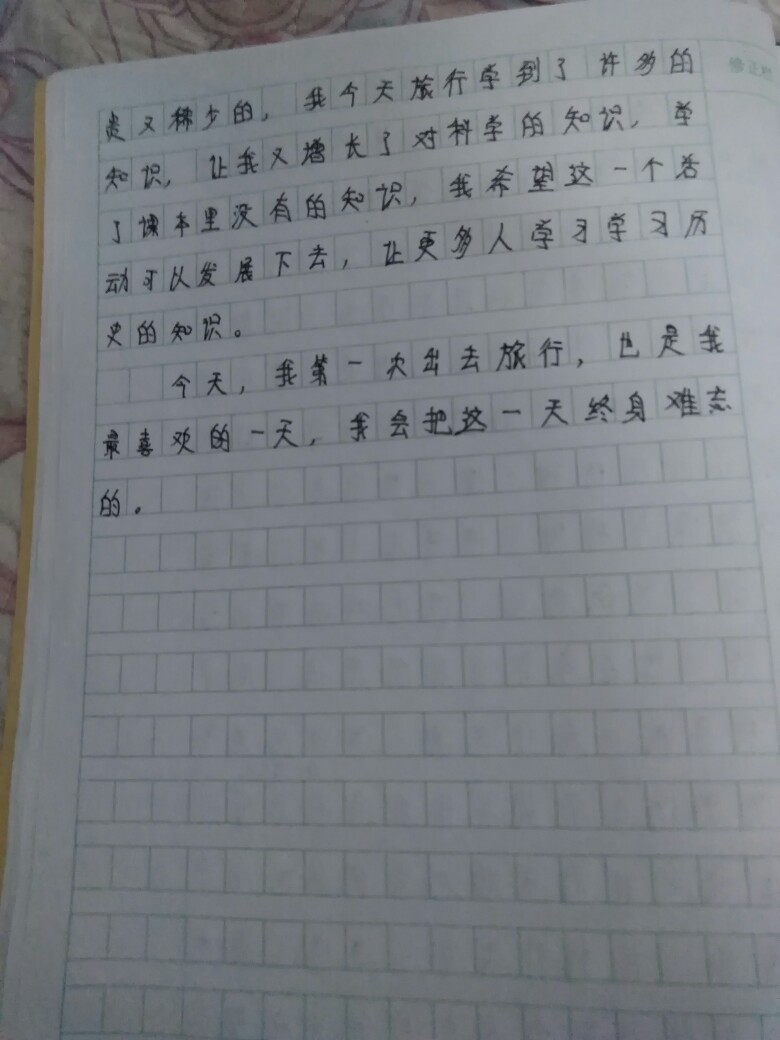 贵又稀少的，我今天旅行学到了许多的
知识，让我又增长了对科学的知识，学
了课本里没有的知识，我希望这一个活
动可以发展下去，让更多人学习学习历
史的知识。
今天，我第一次出去旅行，也是我
最喜欢的一天，我会把这一天终身难忘
的。